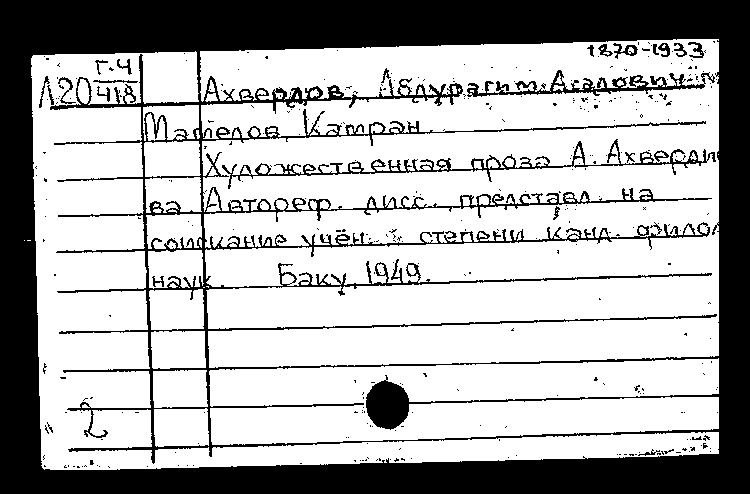 1870-1933
Г.Ч
Л20 418 Ахвердов, Абдурагим Асадович
Мамедов, Катран.
Художественная проза А. Ахвердо
ва Автореф. дисс. представл. на
соискание учён. степени канд. филол
наук. Баку, 1949.
2